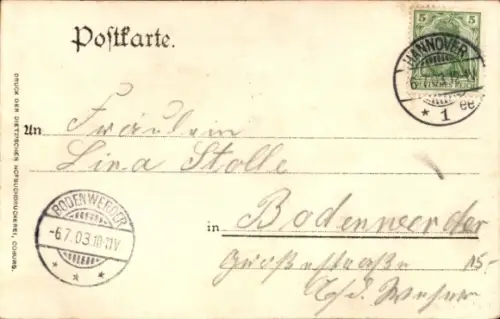 Postkarte.
5
HANNOVER
* 1 ee
DRUCK DER DIETZ'SCHEN HOFBUCHDRUCKEREI, COBURG.
An Fräulein
Lina Stolle
in Bodenwerder
Großestraße 15-
BODENWERDER
-6.7.03.10-11V
* * *